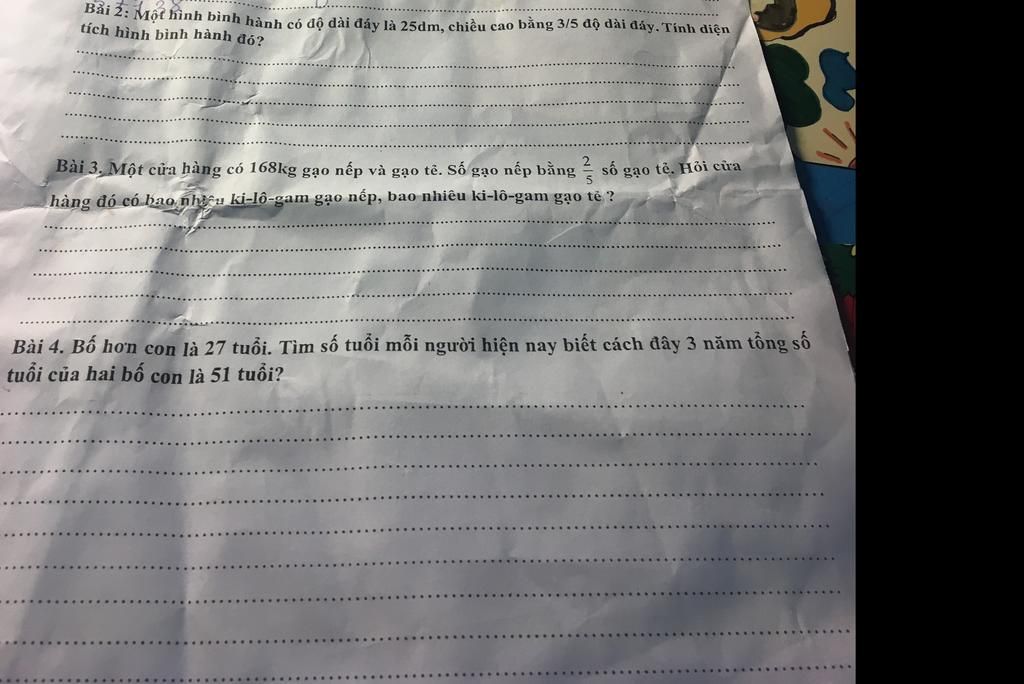 Bài 2: Một hình bình hành có độ dài đáy là 25dm, chiều cao bằng 3/5 độ dài đáy. Tính diện
tích hình bình hành đó?
Bài 3. Một cửa hàng có 168kg gạo nếp và gạo tẻ. Số gạo nếp bằng 2/5 số gạo tẻ. Hỏi cửa
hàng đó có bao nhiêu ki-lô-gam gạo nếp, bao nhiêu ki-lô-gam gạo tẻ ?
Bài 4. Bố hơn con là 27 tuổi. Tìm số tuổi mỗi người hiện nay biết cách đây 3 năm tổng số
tuổi của hai bố con là 51 tuổi?